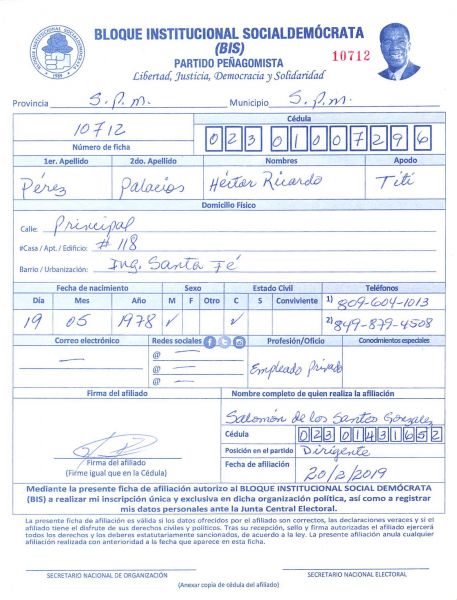 BLOQUE INSTITUCIONAL SOCIALDEMÓCRATA
(BIS)
PARTIDO PEÑAGOMISTA
10712
Libertad, Justicia, Democracia y Solidaridad
Provincia S.P.M. Municipio S.P.M.
10712
Número de ficha
Cédula
02301007296
1er. Apellido 2do. Apellido Nombres Apodo
Pérez Palacios Héctor Ricardo Titi
Domicilio Físico
Calle: Principal
#Casa / Apt. / Edificio: # 118
Barrio / Urbanización: Ing. Santa Fé
Fecha de nacimiento Sexo Estado Civil Teléfonos
Día Mes Año M F Otro C S Conviviente 1) 809-604-1013
19 05 1978 ✓ ✓ 2) 849-879-4508
Correo electrónico Redes sociales Profesión/Oficio Conocimientos especiales
— @ —
@ —
@ —
Empleado Privado
Firma del afiliado Nombre completo de quien realiza la afiliación
Salomón de los Santos Gonzalez
Cédula 02301431652
Posición en el partido Dirigente
Firma del afiliado
(Firme igual que en la Cédula)
Fecha de afiliación 20/2/2019
Mediante la presente ficha de afiliación autorizo al BLOQUE INSTITUCIONAL SOCIAL DEMÓCRATA
(BIS) a realizar mi inscripción única y exclusiva en dicha organización política, así como a registrar
mis datos personales ante la Junta Central Electoral.
La presente ficha de afiliación es válida si los datos ofrecidos por el afiliado son correctos, las declaraciones veraces y si el
afiliado tiene el disfrute de sus derechos civiles y políticos. Tras su recepción, sello y firma autorizados el afiliado ejercerá
todos los derechos y los deberes estatutariamente sancionados, de acuerdo a la ley. La presente afiliación anula cualquier
afiliación realizada con anterioridad a la fecha que aparece en esta ficha.
SECRETARIO NACIONAL DE ORGANIZACIÓN SECRETARIO NACIONAL ELECTORAL
(Anexar copia de cédula del afiliado)